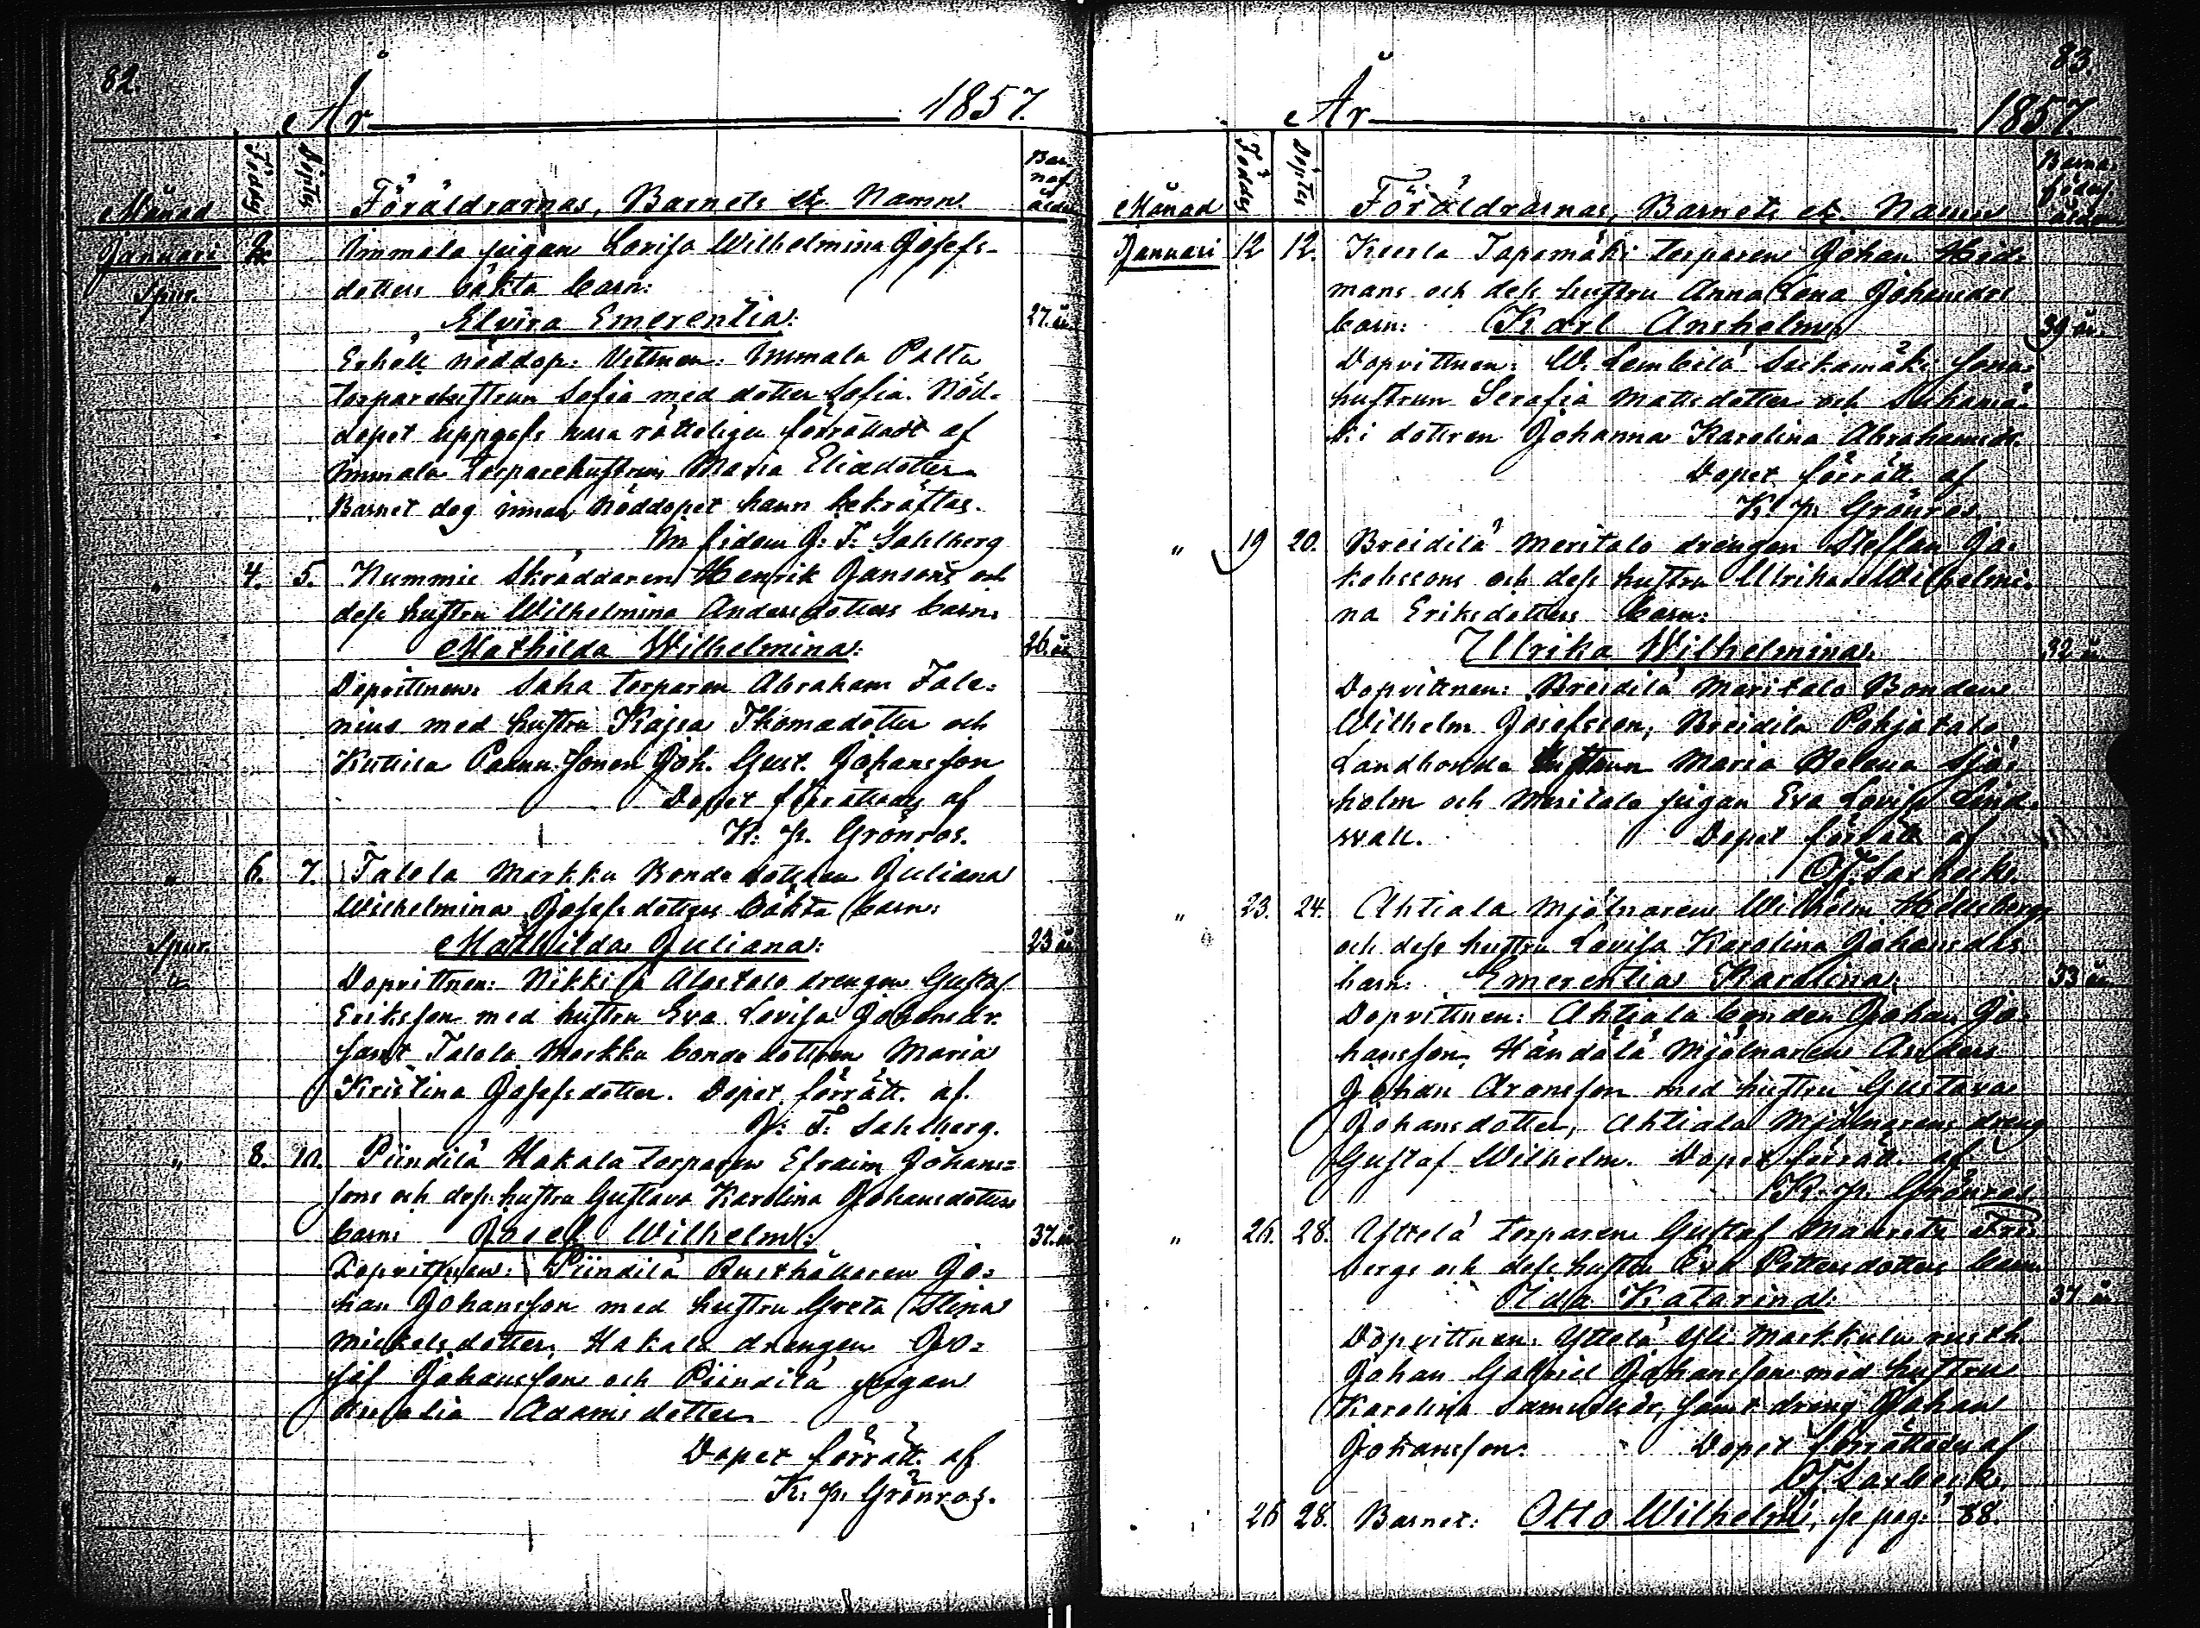 82.
År 1857.
Månad Föddes Döptes Föräldrarnas, Barnets etc. Namn Barnaf. ålder
Januari 2. Immala pigan Lovisa Wilhelmina Josefs-
Spur. dotters oäkta barn:
Elvira Emerentia: 27. år
Erhöll nöddop: Vittnen: Immala Palta
torparehustrun Sofia med dotter Sofia. Nöd-
dopet uppgafs vara rätteligen förrättadt af
Immala torparehustrun Maria Eliædotter
Barnet dog innan nöddopet hann bekräftas.
In fidem J: F: Sahlberg
" 4. 5. Nummis Skräddaren Henrik Jansons och
dess hustru Wilhelmina Andersdotters barn:
Mathilda Wilhelmina: 26. år
Dopvittnen: Saha torparen Abraham Fale-
nius med hustru Kajsa Thomædotter och
Kuttila Pannu Sonen Joh. Gust. Johansson
Dopet förrättades af
K: p: Grönros.
" 6. 7. Talola Markku Bonde dottren Juliana
Wilhelmina Josefsdotters oäkta barn:
Spur. Mathilda Juliana: 23 år
Dopvittnen: Nikkilä Alastalo drengen Gustaf
Eriksson med hustru Eva Lovisa Johansdr.
samt Talola Markku bonde dottren Maria
Kristina Josefsdotter. Dopet förrätt. af.
J: F: Sahlberg.
" 8. 10. Piindilä Hakala torparen Efraim Johans-
sons och dess hustru Gustava Karolina Johansdotters
barn: Josef Wilhelm: 37. år
Dopvittnen: Piindilä Rusthållaren Jo-
han Johansson med hustru Greta Stina
Mickelsdotter, Hakala drengen Jo-
sef Johansson och Piindilä pigan
Adamsdotter
Dopet förrätt. af
K: p: Grönros.
83.
År 1857.
Månad Föddes Döptes Föräldrarnas, Barnets etc. Namn Barnaföders. ålder
Januari 12 12. Keerla Tapamäki torparens Johan Hed-
mans och dess hustru Anna Lena Johansdrs
barn: Karl Anshelm: 39 år.
Dopvittnen: W. Lembilä Suikamäki Sona-
hustrun Serafia Mattsdotter och Suikamä-
ki dottren Johanna Karolina Abrahamsdr.
Dopet förrätt. af
K: p: Grönros
" 19 20. Breidilä Meritalo drengen Steffan Ja-
kobssons och dess hustru Ulrika Wilhelmi-
na Eriksdotters barn:
Ulrika Wilhelmina: 32 år
Dopvittnen: Breidilä Meritalo Bonden
Wilhelm Josefsson, Breidilä Pohjatalo
Landbonde hustrun Maria Helena Sjö-
holm och Meritalo pigan Eva Lovisa Lind-
wall. Dopet förrätt. af
" 23. 24. Ahtiala Mjölnaren Wilhelm
och dess hustru Lovisa Karolina Johansdrs
barn: Emerentia Karolina: 33 år
Dopvittnen: Ahtiala bonden Johan Jo-
hansson, Händälä Mjölnaren Anders
Johan Aronsson med hustru Gustava
Johansdotter, Ahtiala Mjölnarens dreng
Gustaf Wilhelm. Dopet förrätt. af
K: p: Grönros
" 26. 28. Yttelä torparens Gustaf Maurits Fri-
bergs och dess hustru Eva Pettersdotters barn
Ida Katarina: 37 år
Dopvittnen: Yttelä Yli Markkula rusth.
Johan Gabriel Johansson med hustru
Karolina Samuelsdr, samt dreng Johan
Johansson. Dopet förrättades af
26 28. Barnet: Otto Wilhelm, se pag: 88.